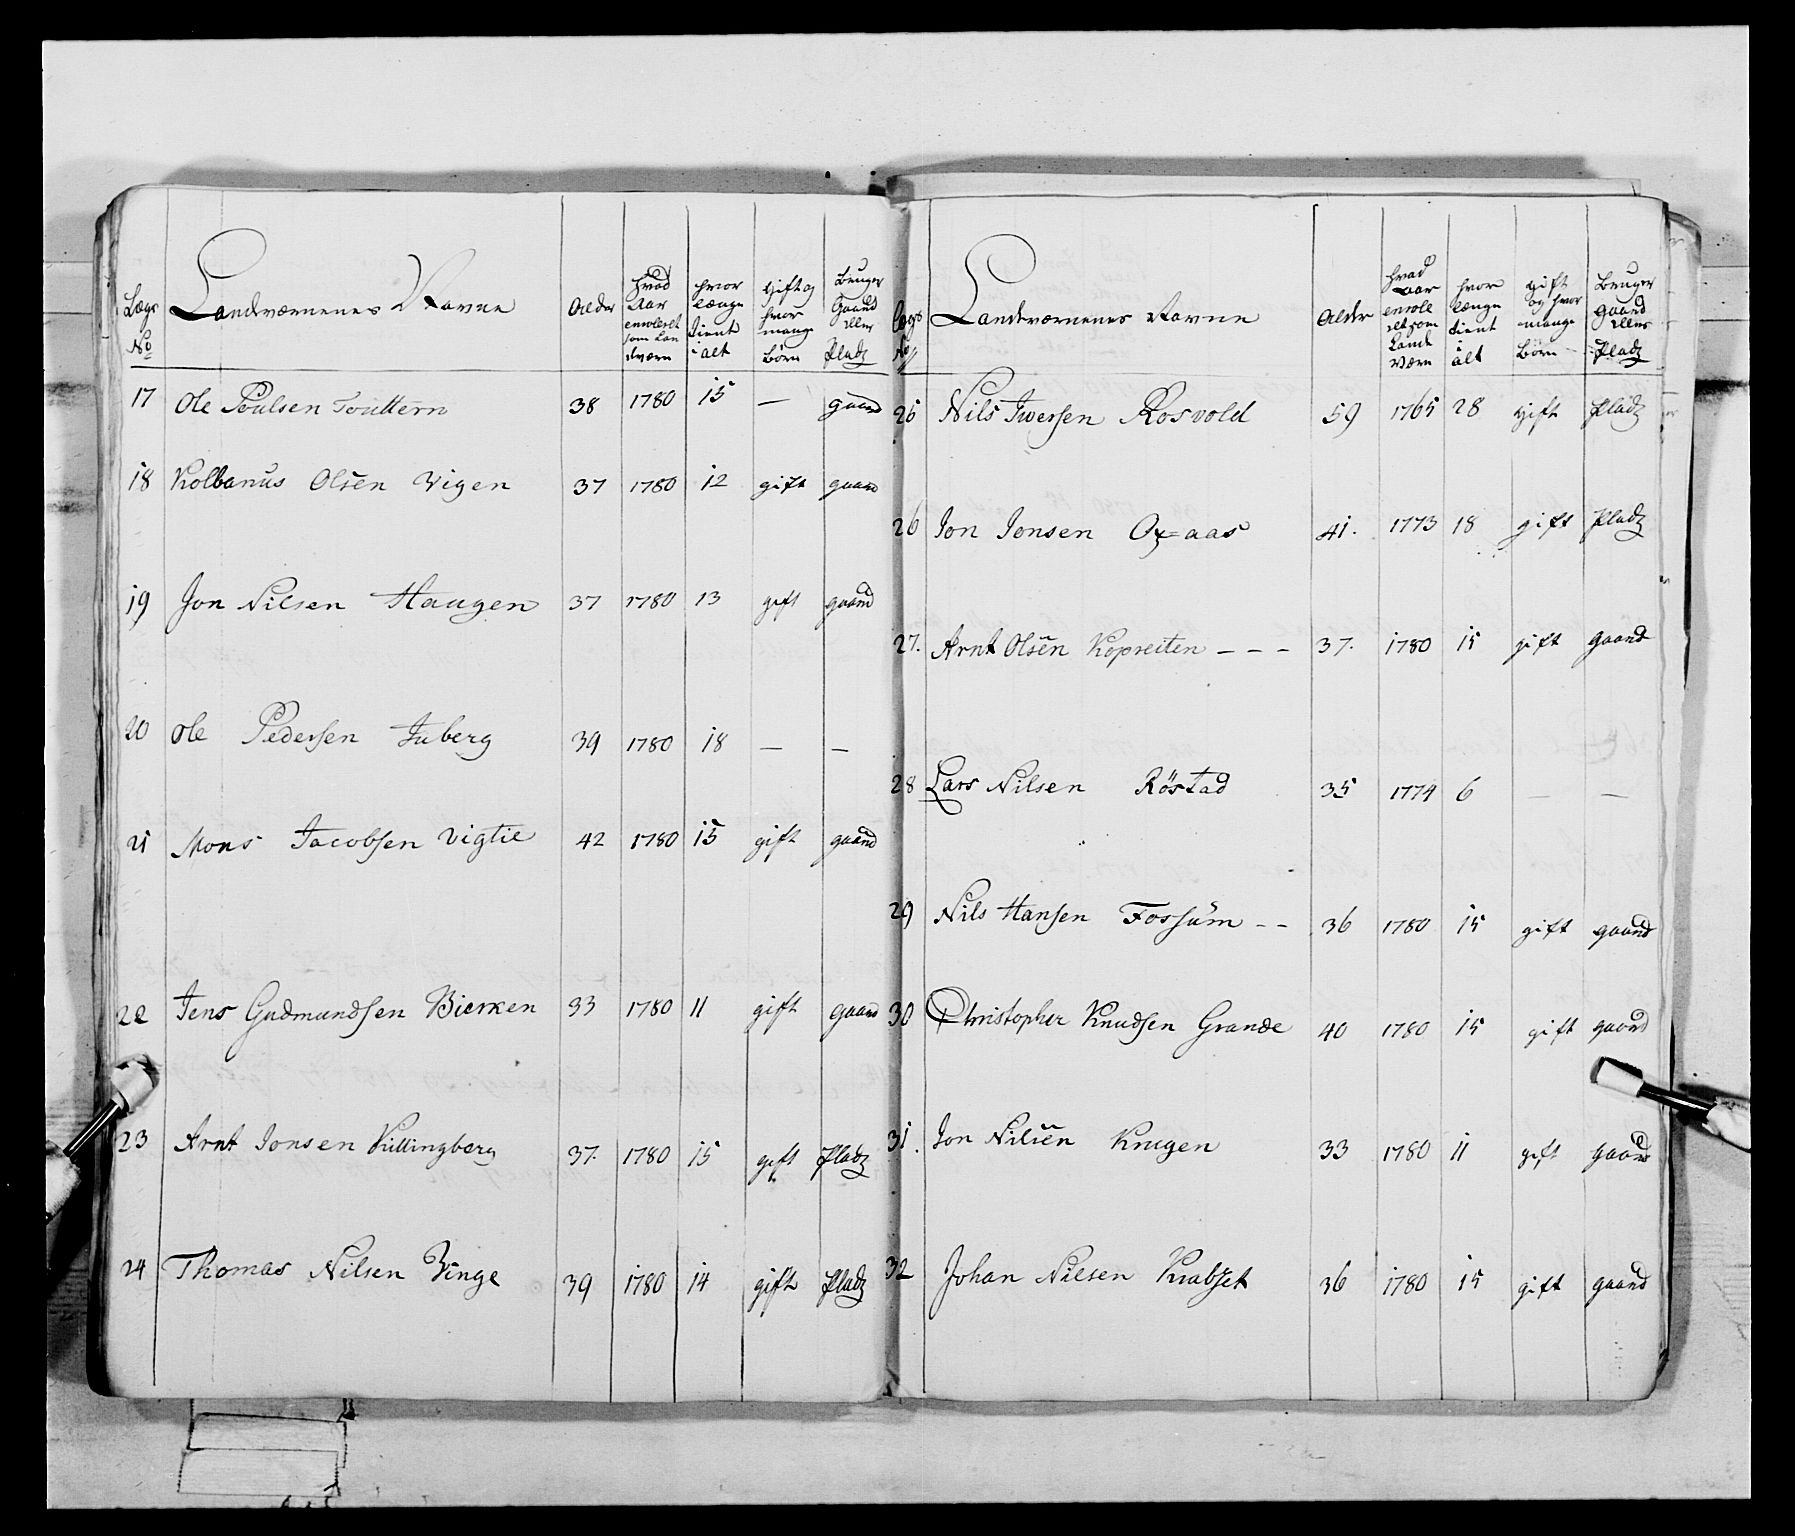 Lægs No
Landværnenes Navne
Alder
Hvad Aar enroleret som Landværn
hvor længe tient i alt
Gift og hvor mange Börn
Bruger Gaard eller Pladz
17 Ole Poulsen 38 1780 15 — gaard
18 Kolbanus Olsen Vigen 37 1780 12 gift gaard
19 Jon Nilsen Haugen 37 1780 13 gift gaard
20 Ole Pedersen Juberg 39 1780 18 — —
21 Mons Jacobsen Vigtie 42 1780 15 gift gaard
22 Jens Gudmundsen Bierken 33 1780 11 gift gaard
23 Arnt Jonsen Kullingberg 37. 1780 15 gift Pladz
24 Thomas Nilsen Vinge 39 1780 14 gift Pladz
Lægs No
Landværnenes Navne
Alder
hvad Aar enrolleret som Land Værn
hvor længe tient i alt
gift og hvor mange Börn
Bruger gaard eller Pladz
25 Nils Iwersen Rosvold 59 1765 28 gift Pladz
26 Jon Jonsen Ox=aas 41. 1773 18 gift Pladz
27. Arnt Olsen Kopreiten - - - 37. 1780 15 gift gaard
28 Lars Nilsen Röstad 35 1774 6 — —
29 Nils Hansen Fossum - - 36 1780 15 gift gaard
30 Christopher Knudsen Grande 40 1780 15 gift gaard
31. Jon Nilsen Krugen 33 1780 11 gift gaard
32 Johan Nilsen Krabset 36 1780 15 gift gaard